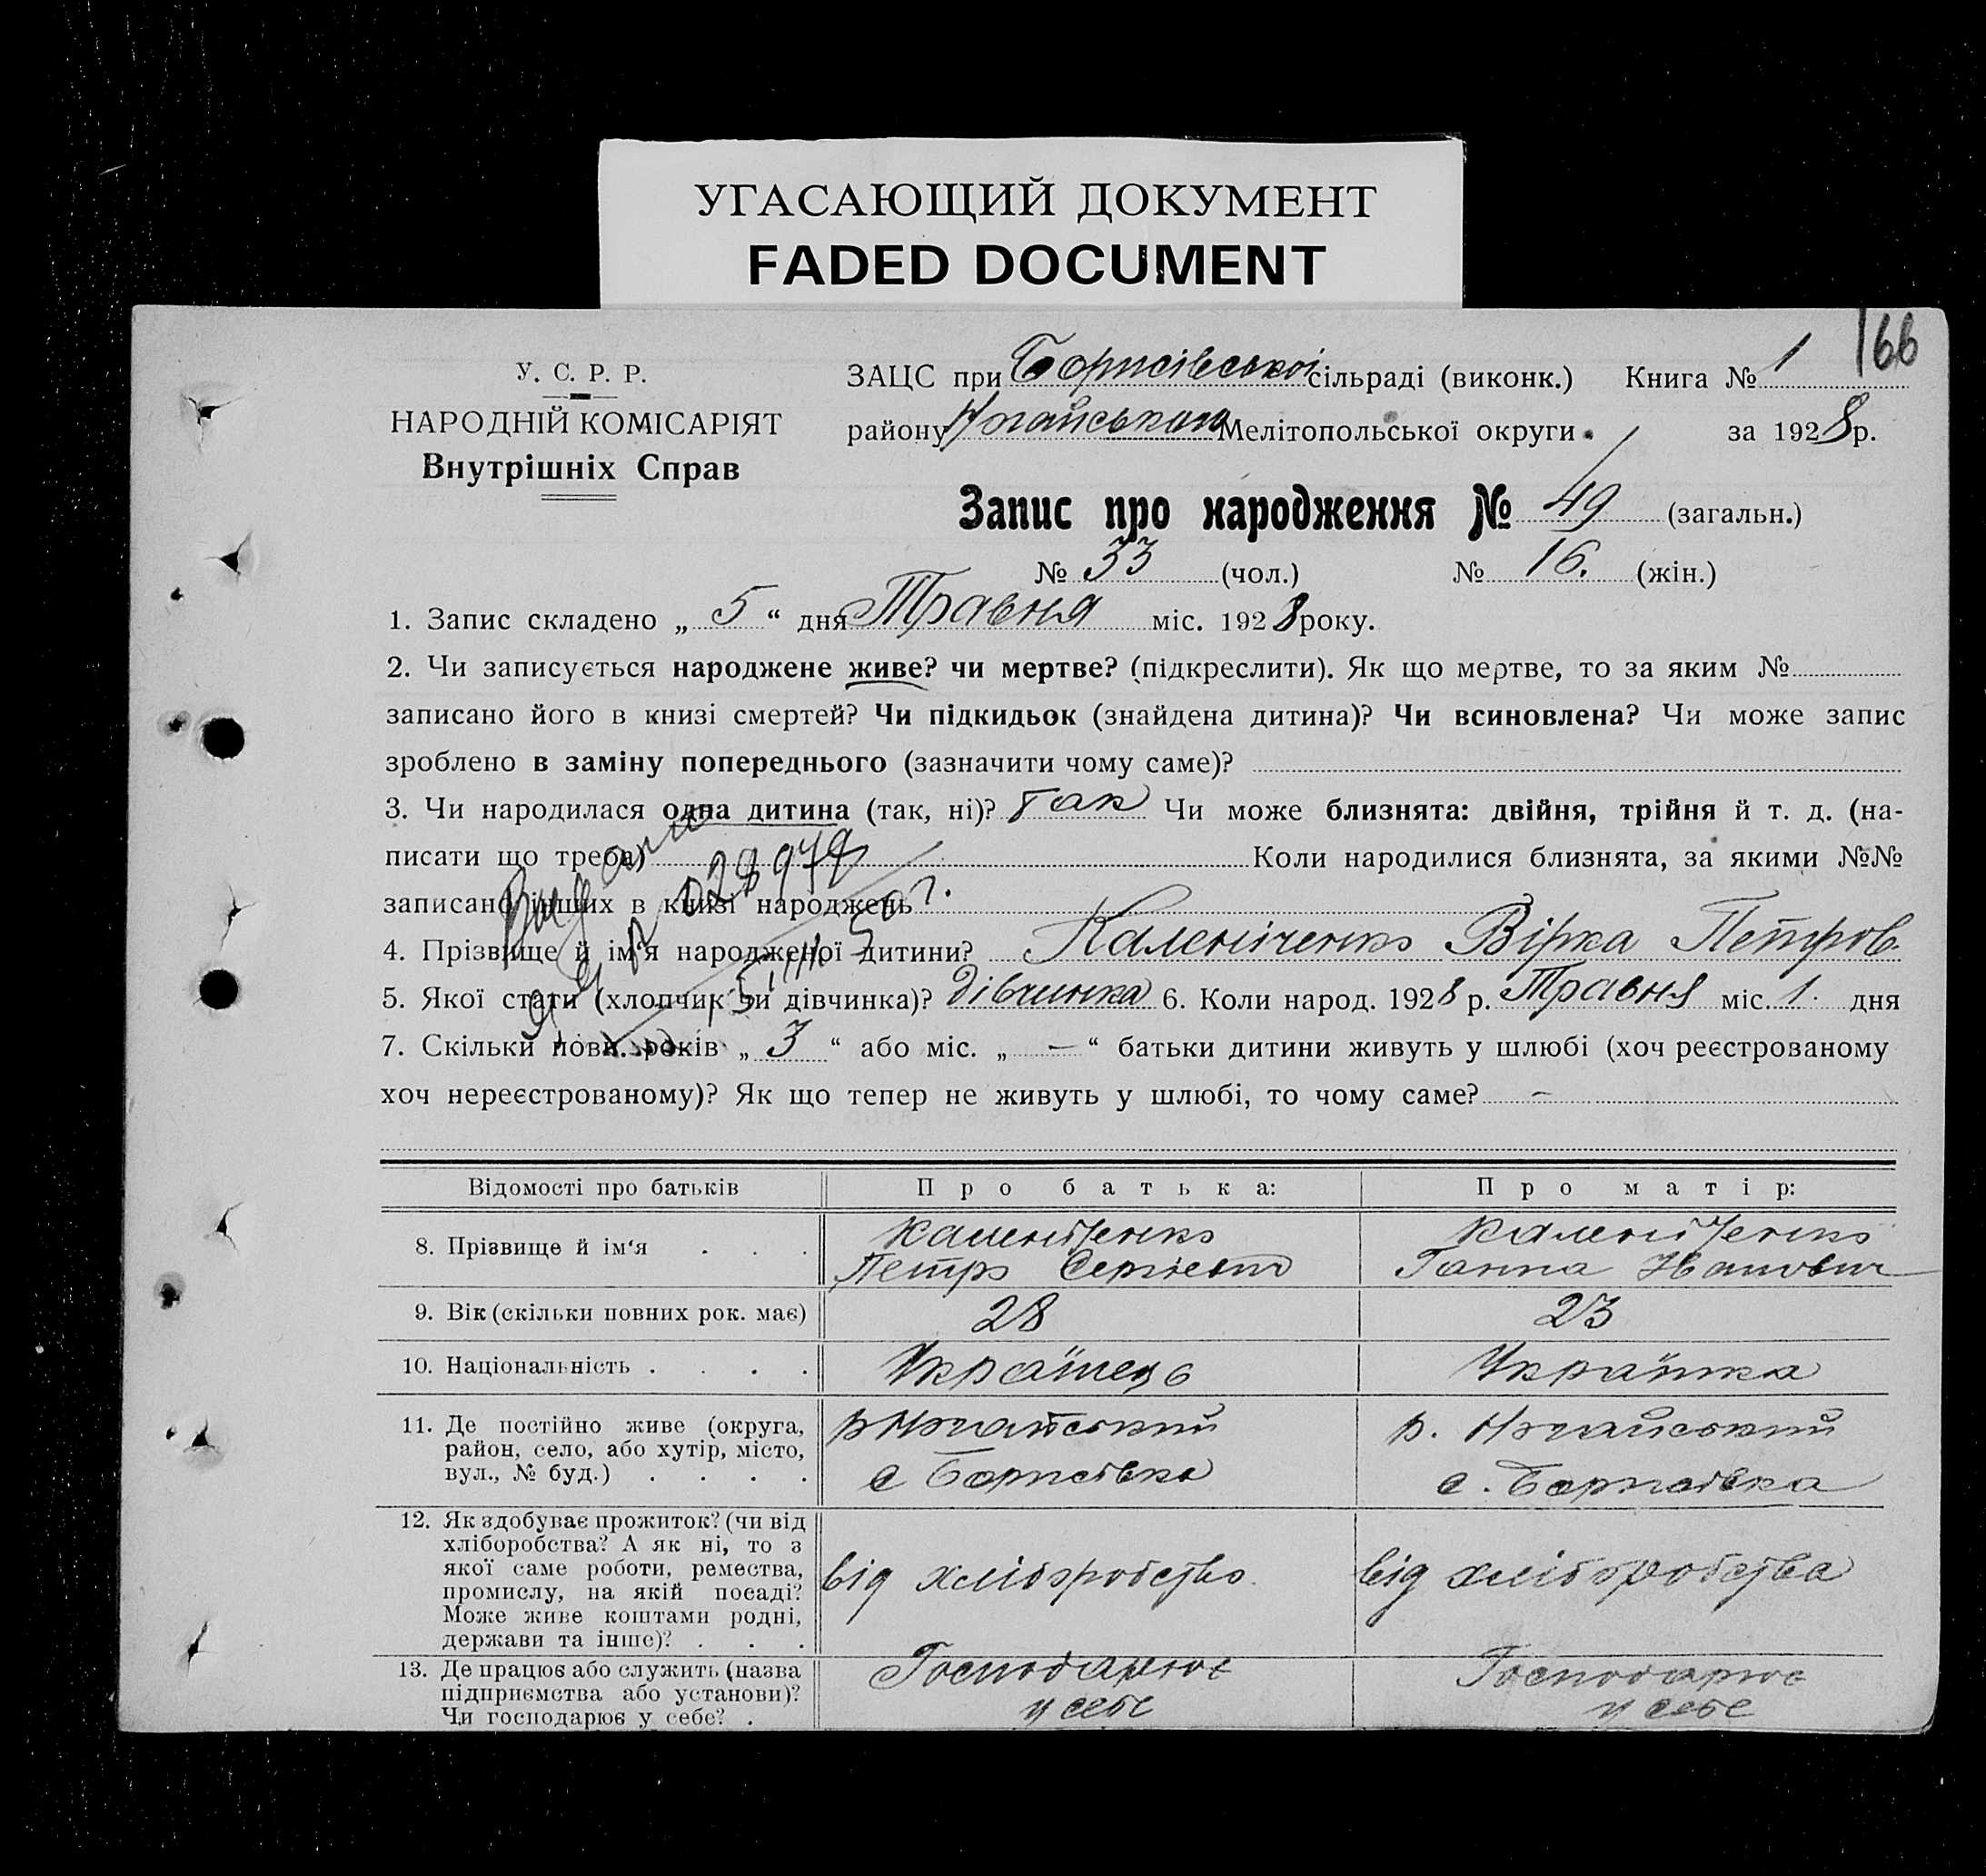 УГАСАЮЩИЙ ДОКУМЕНТ
FADED DOCUMENT
166
У. С. Р. Р.
НАРОДНІЙ КОМІСАРІЯТ
Внутрішніх Справ
ЗАЦС при Борисівської сільраді (виконк.) Книга № 1
району Мелітопольської округи. за 1928 р.
Запис про народження № 49 (загальн.)
№ 33 (чол.) № 16. (жін.)
1. Запис складено „ 5 “ дня Травня міс. 1928 року.
2. Чи записується народжене живе? чи мертве? (підкреслити). Як що мертве, то за яким №
записано його в книзі смертей? Чи підкидьок (знайдена дитина)? Чи всиновлена? Чи може запис
зроблено в заміну попереднього (зазначити чому саме)?
3. Чи народилася одна дитина (так, ні)? Так Чи може близнята: двійня, трійня й т. д. (на-
писати що треба) Коли народилися близнята, за якими №№
записано інших в книзі народжень
4. Прізвище й ім‘я народженої дитини? Каленіченко Вірка Петров.
5. Якої стати (хлопчик чи дівчинка)? дівчинка 6. Коли народ. 1928 р. Травня міс. 1. дня
7. Скільки повн. років „ 3 “ або міс. „ — “ батьки дитини живуть у шлюбі (хоч реєстрованому
хоч нереєстрованому)? Як що тепер не живуть у шлюбі, то чому саме? —
Відомості про батьків Про батька: Про матір:
8. Прізвище й ім‘я . . . Каленіченко Каленіченко
Петро Сергієвич Ганна Иванович
9. Вік (скільки повних рок. має) 28 23
10. Національність . . . . Українець Українка
11. Де постійно живе (округа, район, село, або хутір, місто, вул., № буд.) . . . .
р Ногайський р. Ногайський
с Борисівка с. Борисівка
12. Як здобуває прожиток? (чи від хліборобства? А як ні, то з якої саме роботи, ремества, промислу, на якій посаді? Може живе коштами родні, держави та інше)? . . .
від хліборобство від хліборобства
13. Де працює або служить (назва підприємства або установи)? Чи господарює у себе? .
Господарює Господарює
у себе у себе